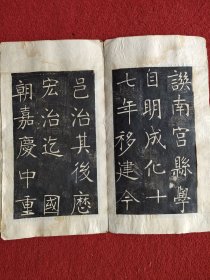 譔南宫縣學
自明成化十
七年移建今
邑治其後歷
宏治迄國
朝嘉慶中重